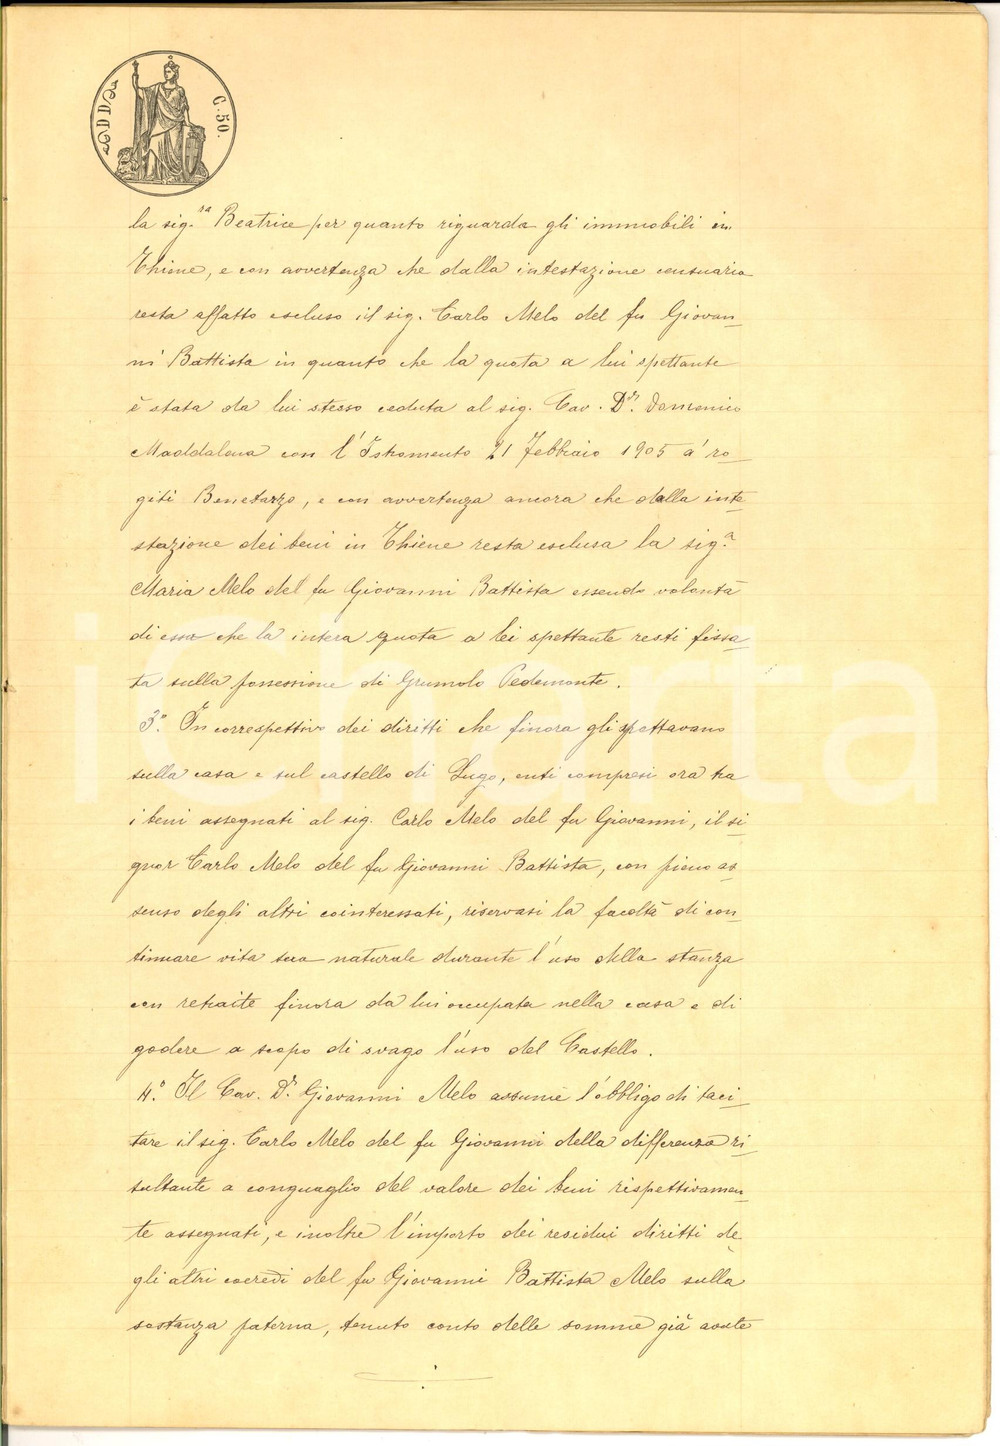 C. 50.
la sig.ra Beatrice per quanto riguarda gli immobili in
Thiene, e con avvertenza che dalla intestazione censuaria
resta affatto escluso il sig. Carlo Melo del fu Giovan-
ni Battista in quanto che la quota a lui spettante
è stata da lui stesso ceduta al sig. Cav. Dr. Domenico
Maddalena con l'Istromento 21 Febbraio 1905 a' ro-
giti Benetazzo, e con avvertenza ancora che dalla inte-
stazione dei beni in Thiene resta esclusa la sig.a
Maria Melo del fu Giovanni Battista essendo volontà
di essa che la intera quota a lei spettante resti fissa-
ta sulla possessione di Grumolo Pedemonte.
3°. In correspettivo dei diritti che finora gli spettavano
sulla casa e sul castello di Lugo, enti compresi ora tra
i beni assegnati al sig. Carlo Melo del fu Giovanni, il si-
gnor Carlo Melo del fu Giovanni Battista, con pieno as-
senso degli altri cointeressati, riservasi la facoltà di con-
tinuare vita sua naturale durante l'uso della stanza
con retraite finora da lui occupata nella casa e di
godere a scopo di svago l'uso del Castello.
4.° Il Cav. Dr. Giovanni Melo assume l'obbligo di taci-
tare il sig. Carlo Melo del fu Giovanni della differenza ri-
sultante a conguaglio del valore dei beni rispettivamen-
te assegnati, e inoltre l'importo dei residui diritti de-
gli altri coeredi del fu Giovanni Battista Melo sulla
sostanza paterna, tenuto conto delle somme già avute